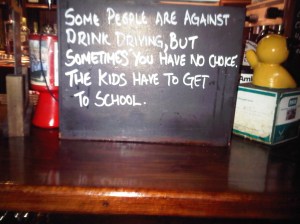 SOME PEOPLE ARE AGAINST
DRINK DRIVING, BUT
SOMETIMES YOU HAVE NO CHOICE.
THE KIDS HAVE TO GET
TO SCHOOL.